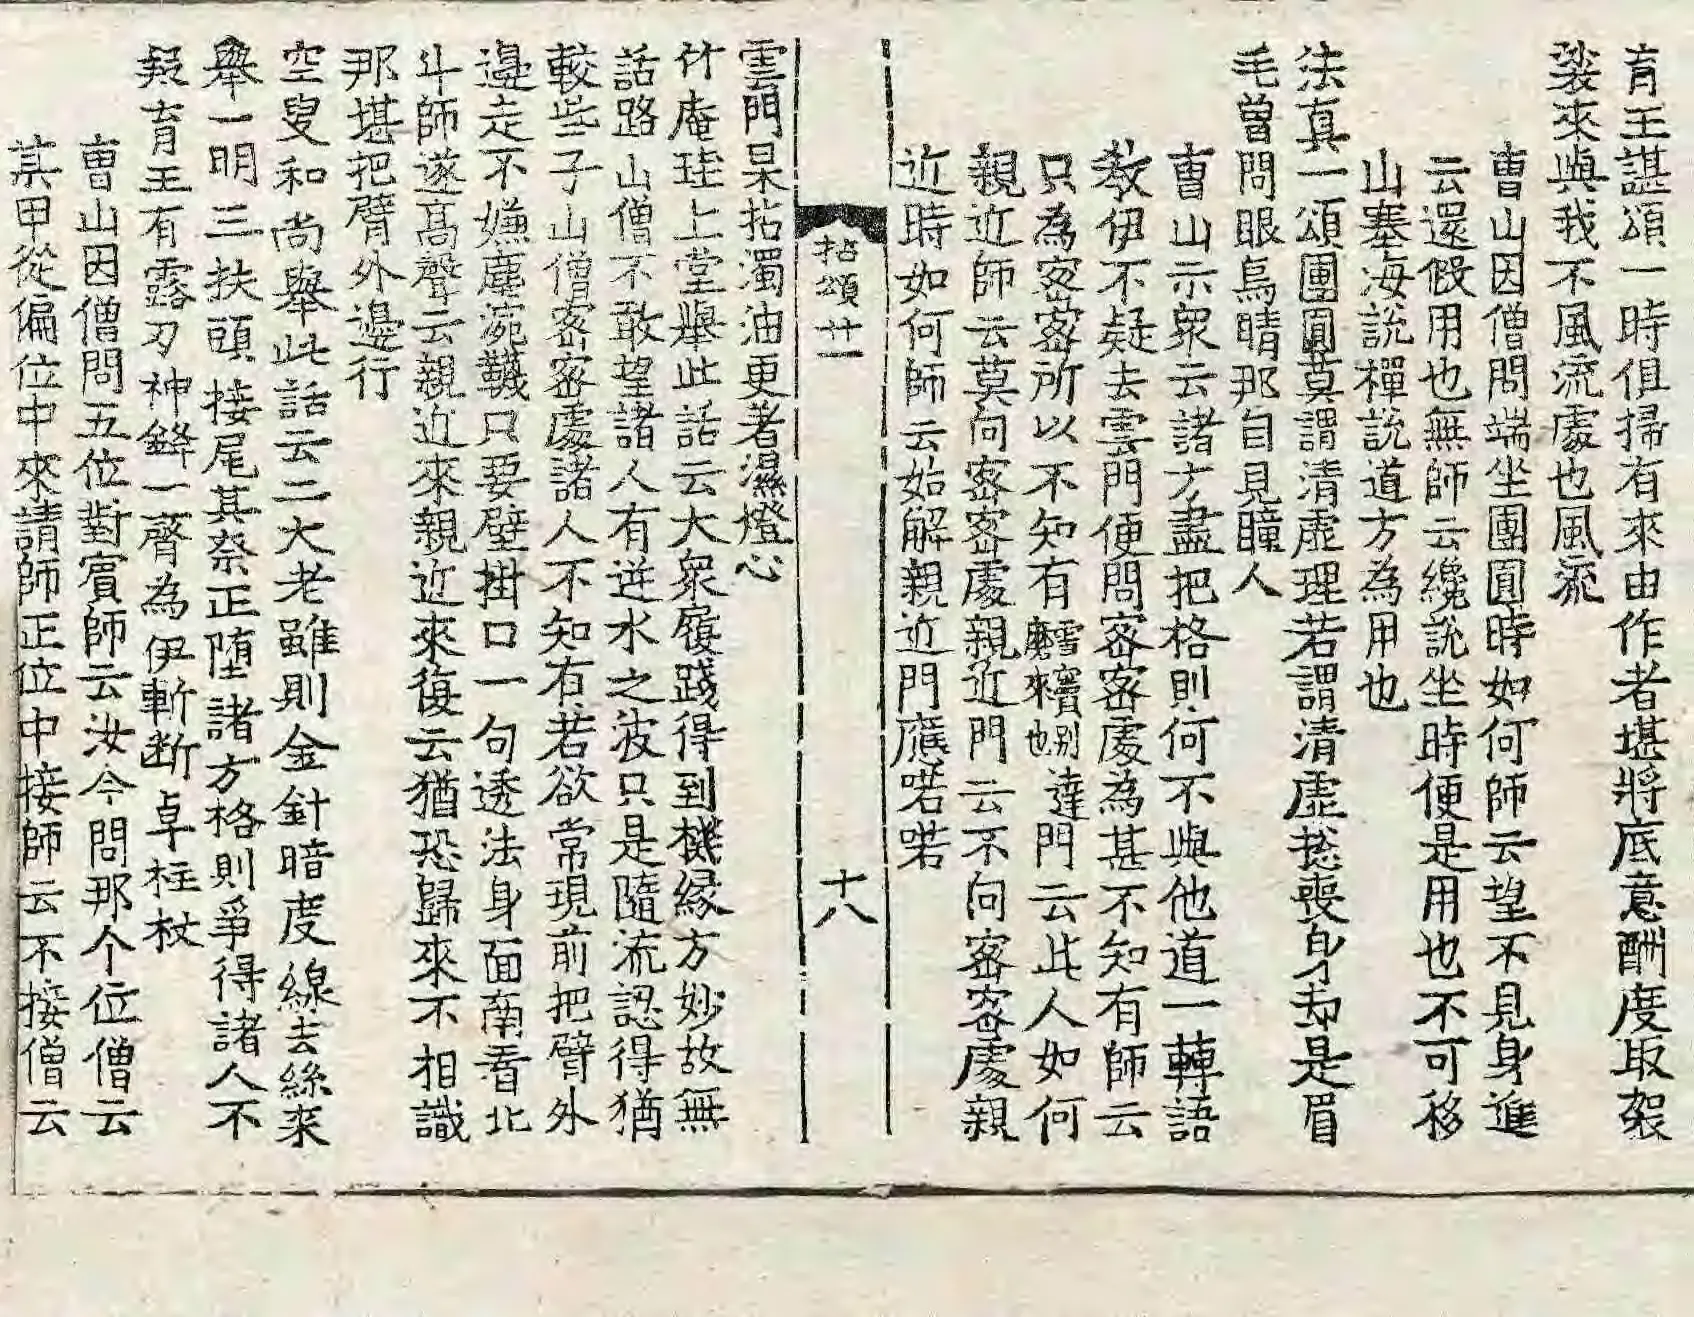 育王諶頌一時俱掃有來由作者堪將底意酬度取袈
裟來與我不風流處也風流
曹山因僧問端坐團圓時如何師云望不見身進
云還假用也無師云纔說坐時便是用也不可移
山塞海說禪說道方為用也
法真一頌團圓莫謂清虛理若謂清虛捴喪身却是眉
毛曾問眼烏睛那自見瞳人
曹山示衆云諸方盡把格則何不與他道一轉語
教伊不疑去雲門便問密密處為甚不知有師云
只為密密所以不知有雪竇別磨來也達門云此人如何
親近師云莫向密密處親近門云不向密密處親
近時如何師云始解親近門應喏喏
拈頌廿一
十八
雲門杲拈濁油更著濕燈心
竹庵珪上堂舉此話云大衆履踐得到機緣方妙故無
話路山僧不敢望諸人有逆水之波只是隨流認得猶
較些子山僧密密處諸人不知有若欲常現前把臂外
邊走不嫌塵涴韈只要壁掛口一句透法身面南看北
斗師遂高聲云親近來親近來復云猶恐歸來不相識
那堪把臂外邊行
空叟和尚舉此話云二大老雖則金針暗度線去絲來
舉一明三扶頭接尾其柰正墮諸方格則爭得諸人不
疑育王有露刃神鋒一齊為伊斬断卓柱杖
曹山因僧問五位對賓師云汝今問那个位僧云
某甲從偏位中來請師正位中接師云不接僧云